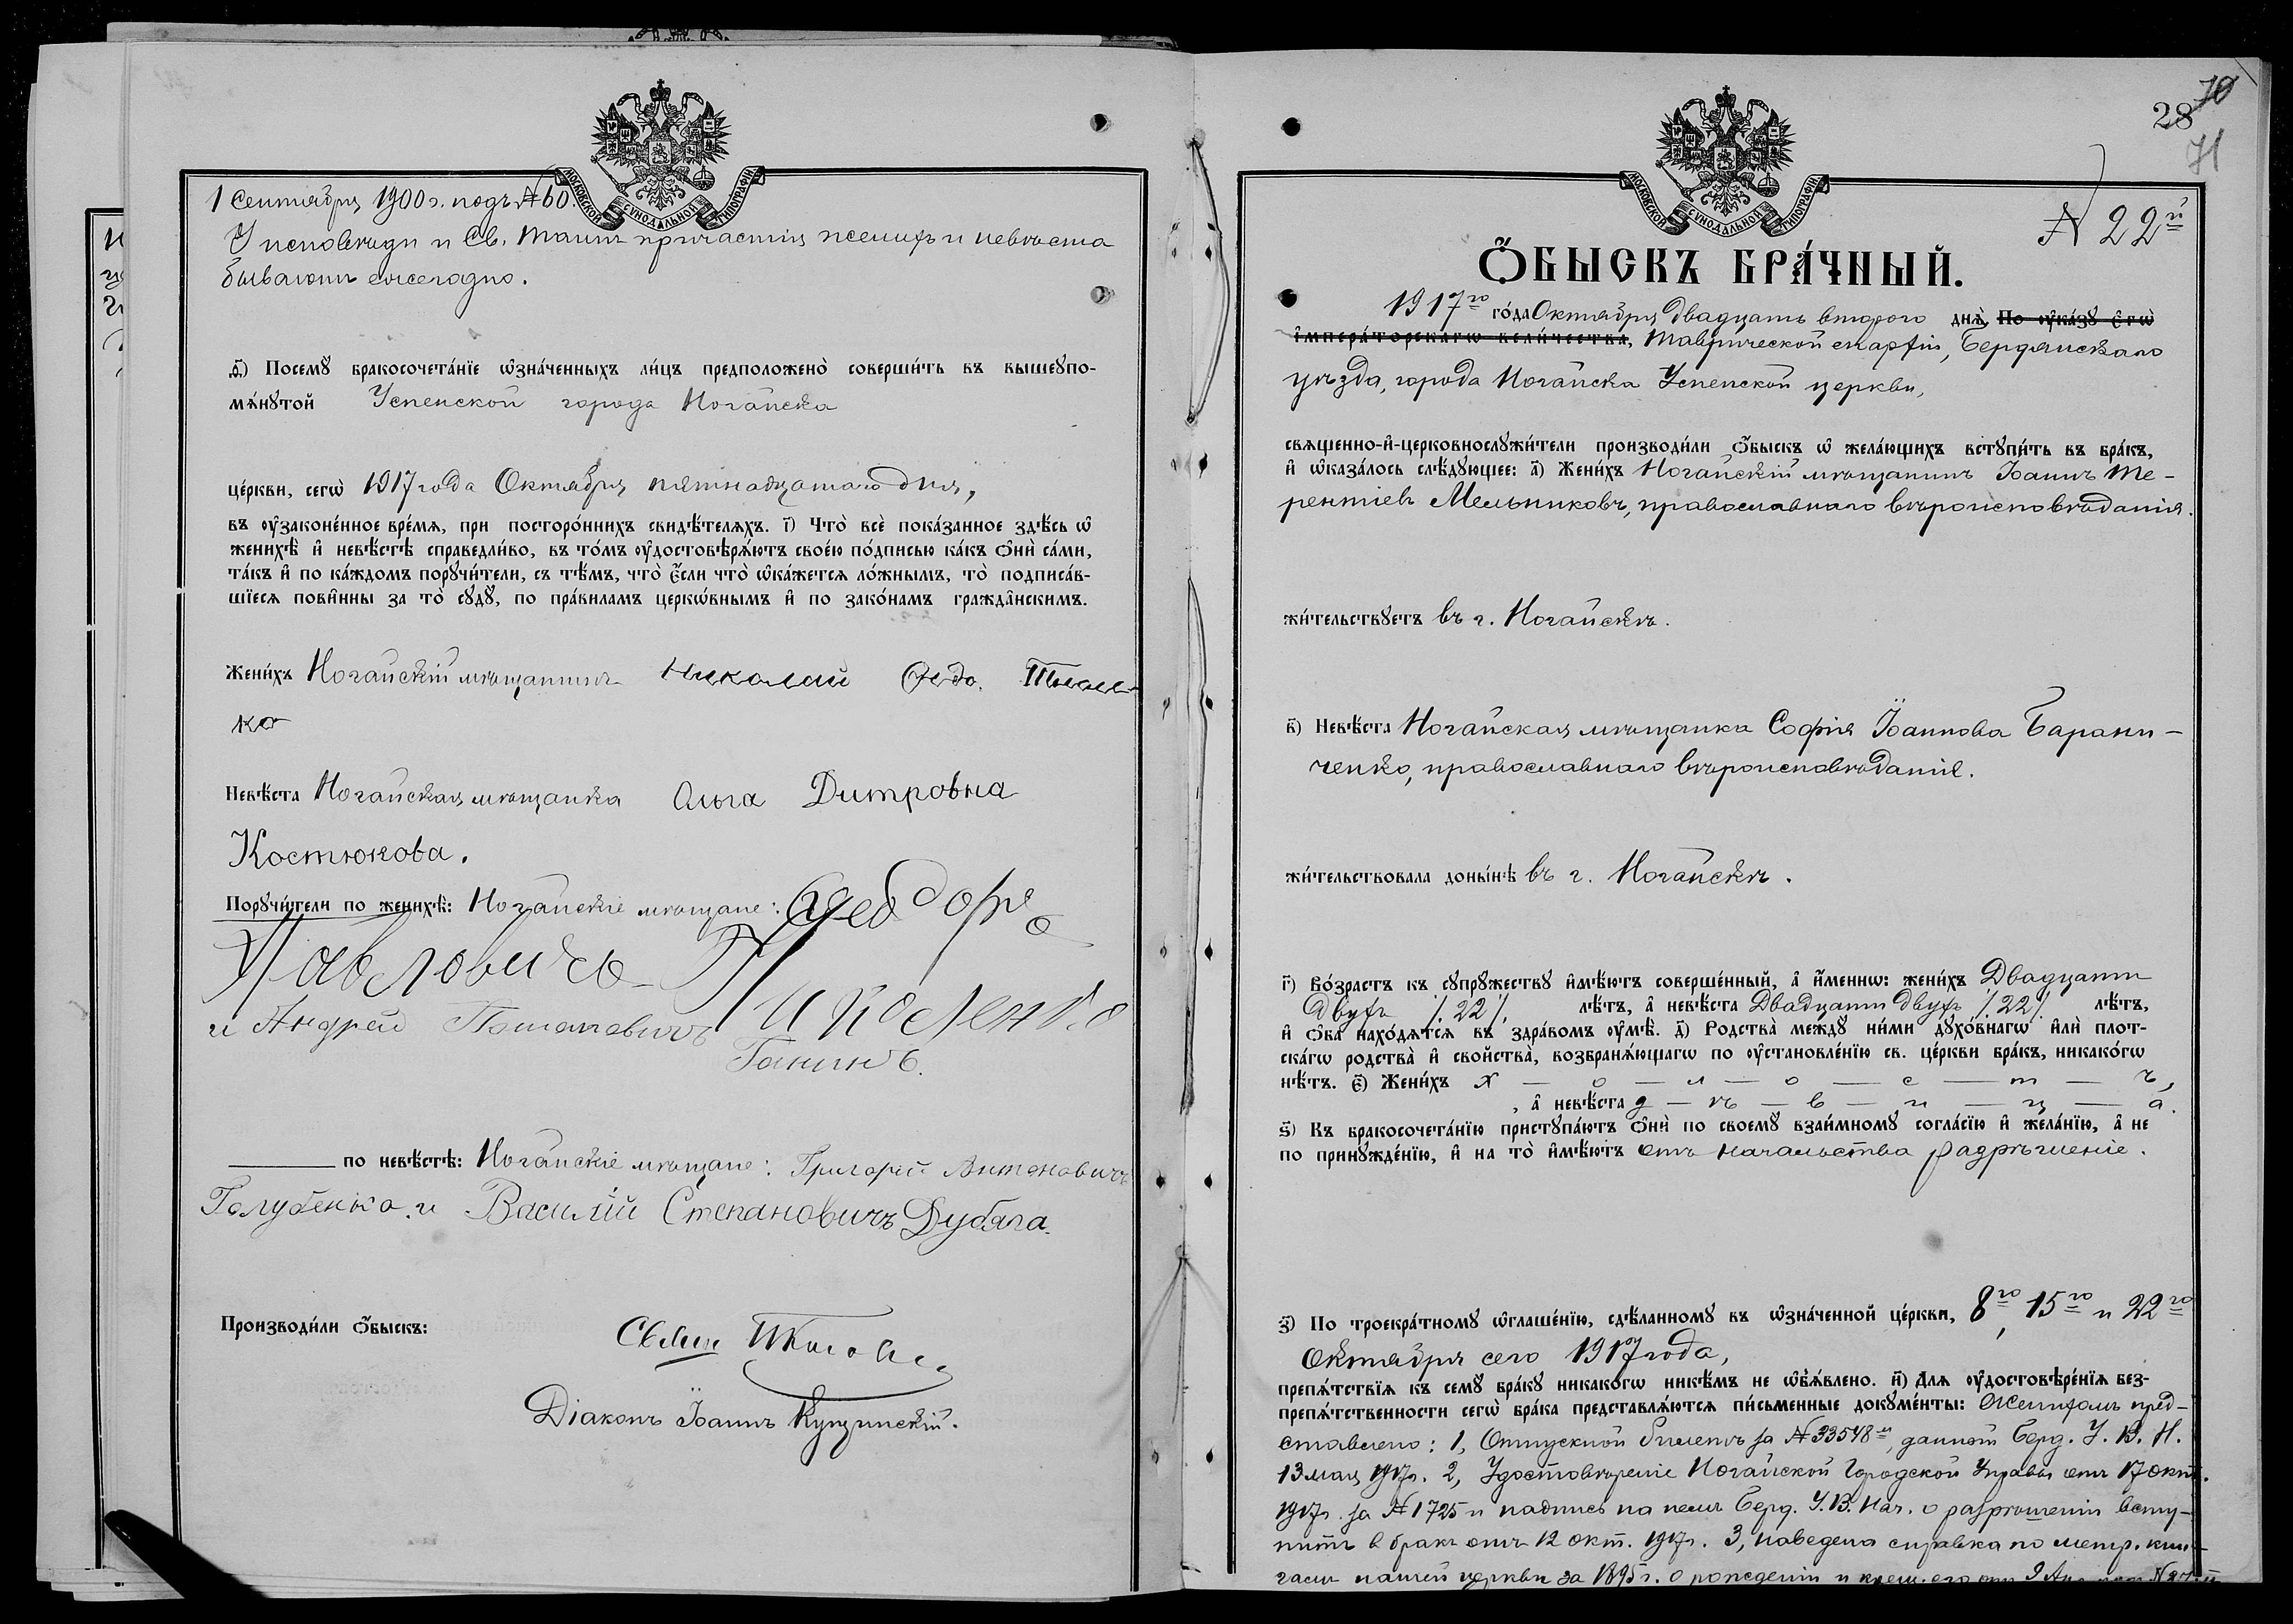 МОСКОВСКОЙ СѴНОДАЛЬНОЙ ТИПОГРАФІИ
1 Сентября 1900 г. подъ № 60.
У исповѣди и Св. Таинъ причастія женихъ и невѣста
бываютъ ежегодно.
д҃і) Посемꙋ бракосочета́нїе ѡ҆зна́ченныхъ ли́цъ предположено̀ соверши́ть въ вышеꙋпо-
мѧ́нꙋтой Успенской города Ногайска
це́ркви, сегѡ̀ 1917 года Октября пятнадцатаго дня,
въ ᲂу҆законе́нное вре́мѧ, при посторо́ннихъ свидѣ́телѧхъ. і҃) Что̀ всѐ пока́занное здѣ́сь ѡ҆
женихѣ̀ и҆ невѣ́стѣ справедли́во, въ то́мъ ᲂу҆достовѣрѧ́ютъ свое́ю по́дписью ка́къ ѻ҆нѝ са́ми,
та́къ и҆ по ка́ждомъ порꙋчи́тели, съ тѣ́мъ, что̀ є҆́сли что̀ ѡ҆ка́жетсѧ ло́жнымъ, то̀ подписа́в-
шїесѧ пови́нны за то̀ сꙋдꙋ̀, по пра́виламъ церко́внымъ и҆ по зако́намъ гражда́нскимъ.
Жени́хъ Ногайскій мѣщанинъ Николай Федо. Ткаче-
ко
Невѣ́ста Ногайская мѣщанка Ольга Дитровна
Костюкова.
Порꙋчи́тели по женихѣ̀: Ногайскіе мѣщане: Феодоръ
Павловичъ
и Андрей Потаповичъ
Ганинъ.
по невѣ́стѣ: Ногайскіе мѣщане: Григорій Антоновичъ
Голубенко и Василій Степановичъ Дубяга.
Производи́ли ѻ҆́быскъ:
Діаконъ Іоаннъ Кущинскій.
28 70
71
МОСКОВСКОЙ СѴНОДАЛЬНОЙ ТИПОГРАФІИ
№ 22й
Ѻ҆́БЫСКЪ БРА́ЧНЫЙ.
1917го го́да Октября двадцать второго днѧ̀, По ᲂу҆ка́зꙋ є҆гѡ̀
и҆мпера́торскагѡ вели́чества, Таврической епархіи, Бердянскаго
уѣзда, города Ногайска Успенской церкви,
свѧщенно-и҆-церковнослꙋжи́тели производи́ли ѻ҆́быскъ ѡ҆ жела́ющихъ встꙋпи́ть въ бра́къ,
и҆ ѡ҆каза́лось слѣ́дꙋющее: а҃) Жени́хъ Ногайскій мѣщанинъ Іоаннъ Те-
рентіевъ Мельниковъ, православнаго вѣроисповѣданія.
жи́тельствꙋетъ въ г. Ногайскѣ.
в҃) Невѣ́ста Ногайская мѣщанка Софія Іоаннова Барани-
ченко, православнаго вѣроисповѣданія.
жи́тельствовала доны́нѣ въ г. Ногайскѣ.
г҃) Во́зрастъ къ сꙋпрꙋжествꙋ и҆мѣ́ютъ соверше́нный, а҆ и҆́меннѡ: жени́хъ Двадцати
двухъ /.22/. лѣ́тъ, а҆ невѣ́ста Двадцати двухъ /.22/. лѣ́тъ,
и҆ ѻ҆́ба нахо́дѧтсѧ въ здра́вомъ ᲂу҆мѣ̀. д҃) Родства̀ междꙋ̀ ни́ми дꙋхо́внагѡ и҆лѝ плот-
ска́гѡ родства̀ и҆ сво́йства̀, возбранѧ́ющагѡ по ᲂу҆становле́нїю св. це́ркви бра́къ, никако́гѡ
нѣ́тъ. є҃) Жени́хъ х — о — л — о — с — т — ъ,
, а҆ невѣ́ста д — ѣ — в — и — ц — а.
ѕ҃) Къ бракосочета́нїю пристꙋпа́ютъ ѻ҆нѝ по своемꙋ̀ взаи́мномꙋ согла́сїю и҆ жела́нїю, а҆ не
по принꙋжде́нїю, и҆ на то̀ и҆мѣ́ютъ отъ начальства разрѣшеніе.
з҃) По троекра́тномꙋ ѡ҆глаше́нїю, сдѣ́ланномꙋ въ ѡ҆зна́ченной це́ркви, 8го, 15го и 22го
Октября сего 1917 года,
препѧ́тствїѧ къ семꙋ̀ бра́кꙋ никако́гѡ никѣ́мъ не ѡ҆б̾ѧ́влено. и҃) Длѧ ᲂу҆достовѣре́нїѧ без-
препѧ́тственности сегѡ̀ бра́ка представлѧ́ютсѧ пи́сьменные докꙋме́нты: Женихомъ пред-
ставлено: 1, Отпускной билетъ за № 33548м, данной Берд. У. В. Н.
13 мая 1917 г. 2, Удостовѣреніе Ногайской Городской Управы отъ 17 окт.
1917 г. за № 1725 и надпись на немъ Берд. У. В. Нач. о разрѣшеніи всту-
пить в бракъ отъ 12 окт. 1917 г. 3, наведена справка по метр. кни-
гамъ нашей церкви за 1895 г. о рожденіи и крещ. его